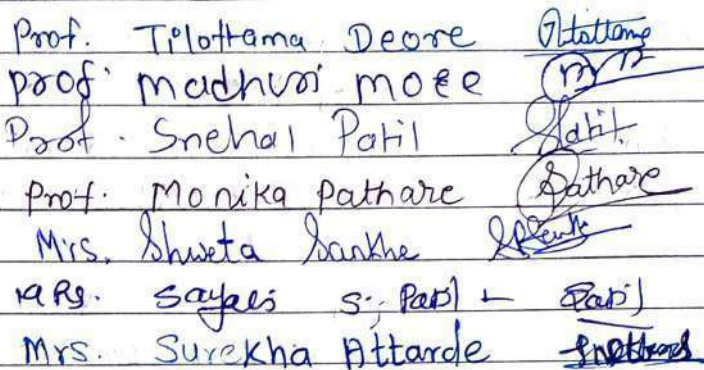 Prof. Tilottama Deore Ptilottama
Prof. Madhuri More
Prof. Snehal Patil SPatil
Prof. Monika Pathare Pathare
Mrs. Shweta Sankhe
MRS. Sayali S. Patil - Patil
Mrs. Surekha Attarde